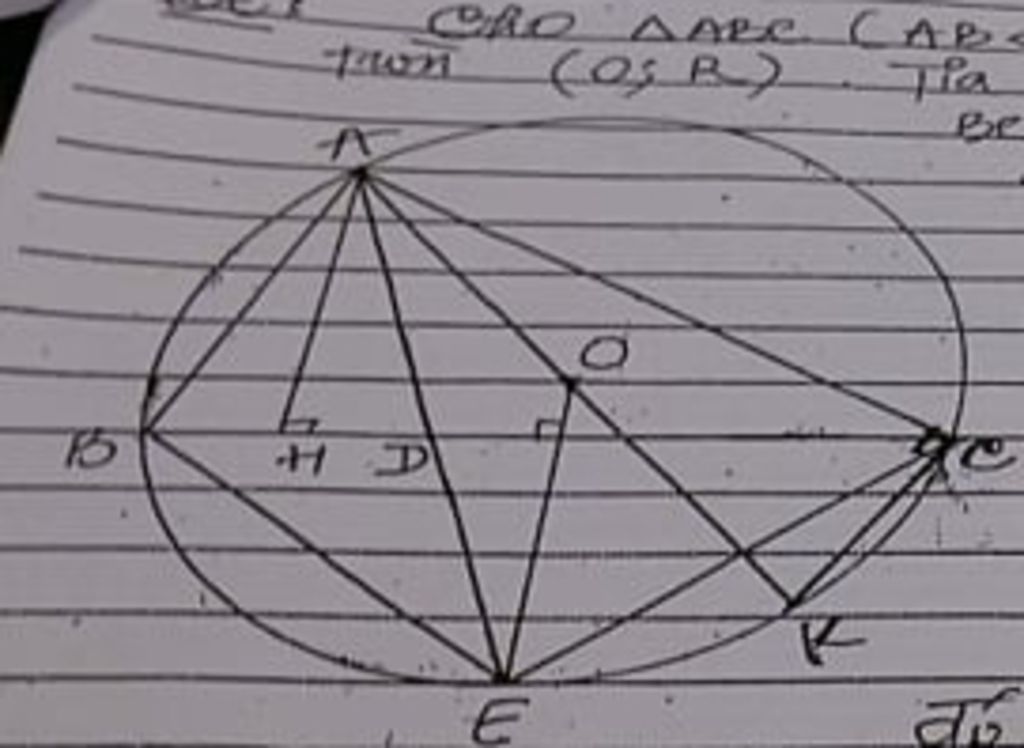 Cho ΔABC (AB<
tròn (O; R). Tia
BC
A
O
B
H
D
C
K
E